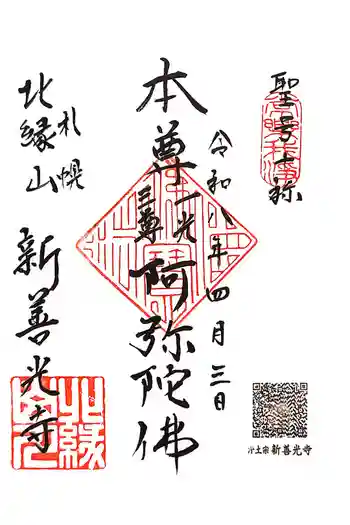 聖号十称
令和八年四月三日
本尊一光三尊阿弥陀佛
札幌
北縁山
新善光寺
北縁
浄土宗 新善光寺